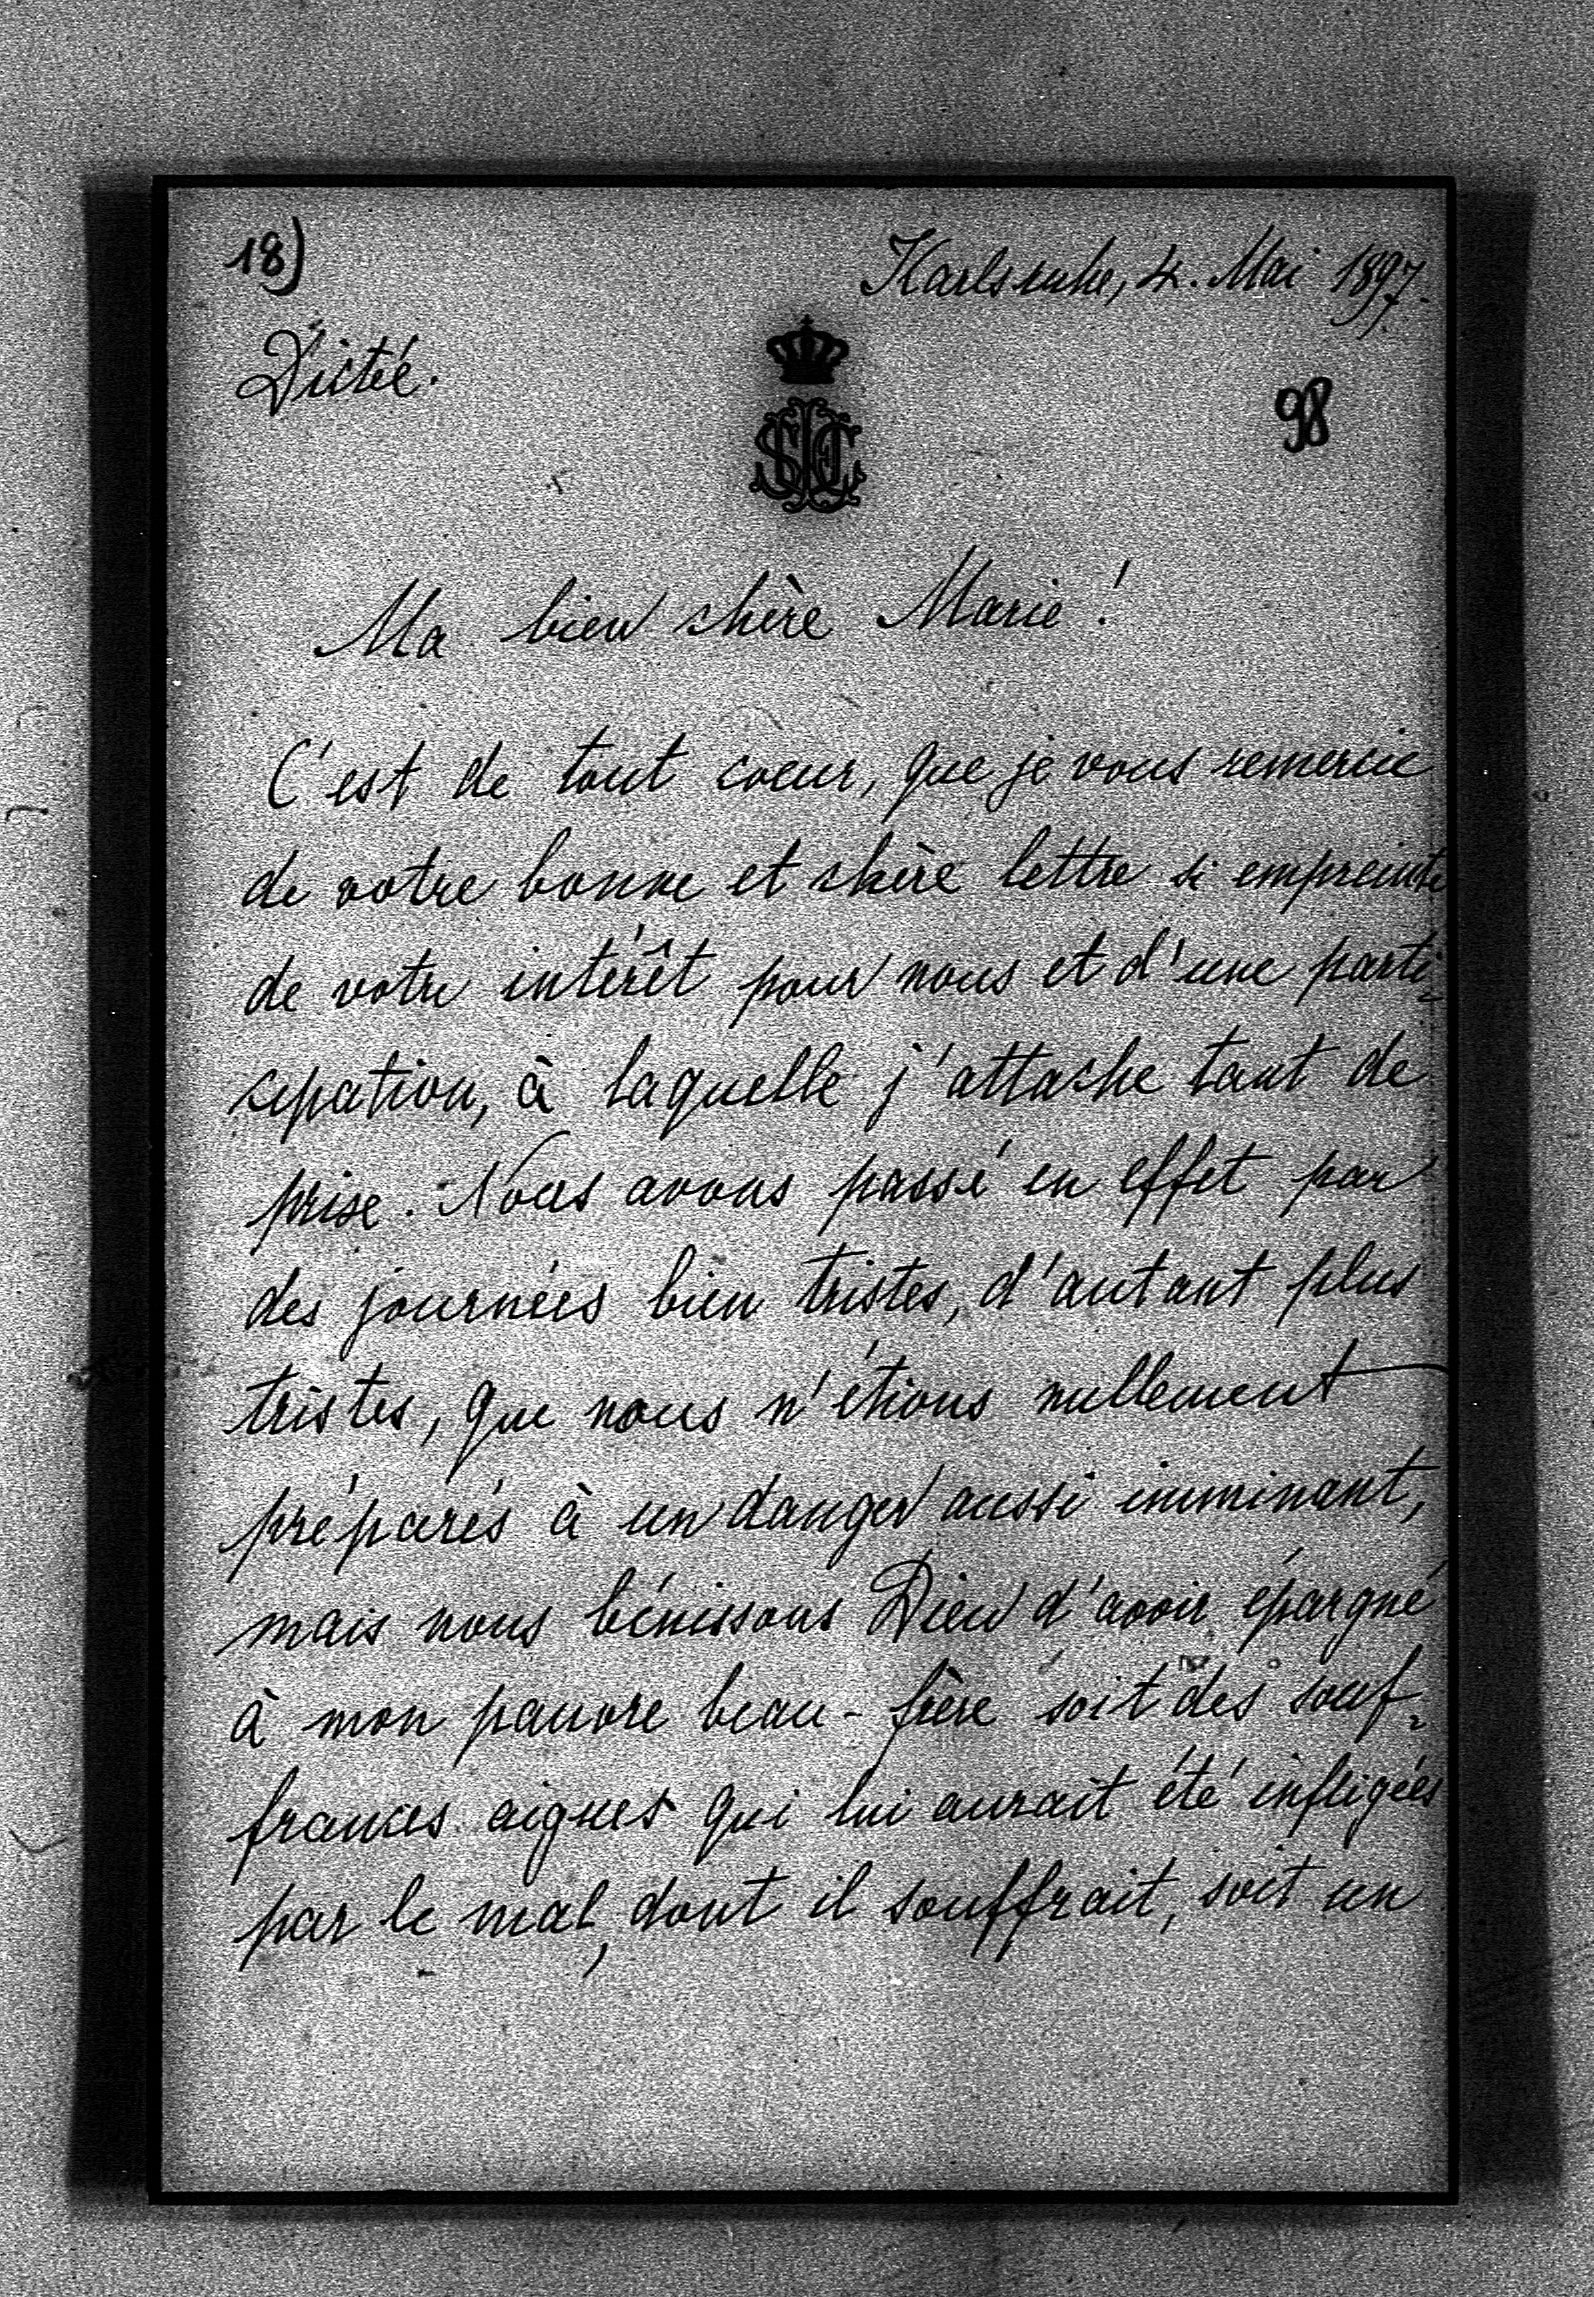 18)
Karlsruhe, 4. Mai 1897.
Dictée.
98
Ma bien chère Marie!
C'est de tout coeur, que je vous remercie
de votre bonne et chère lettre si empreinte
de votre intérêt pour nous et d'une parti-
cipation, à laquelle j'attache tant de
prise. Nous avons passé en effet par
des journées bien tristes, d'autant plus
tristes, que nous n'étions nullement
préparés à un danger aussi imminant,
mais nous bénissons Dieu d'avoir épargné
à mon pauvre beau-frère soit des souf-
frances aigues qui lui aurait été infligées
par le mal, dont il souffrait, soit un